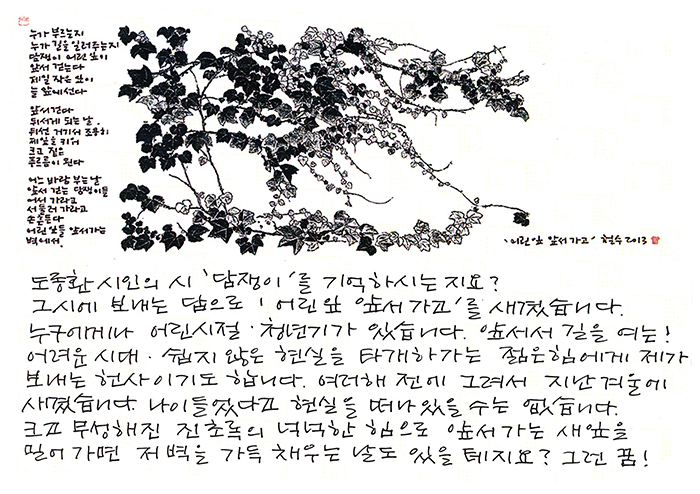 누가 부르는지
누가 길을 일러주는지
담쟁이 어린 잎이
앞서 걷는다
제일 작은 잎이
늘 앞에 선다
앞서 걷다
뒤서게 되는 날,
뒤선 거기서 조용히
제 잎을 키워
크고 짙은
푸르름이 된다
어느 바람 부는 날
앞서 걷는 담쟁이들
어서 가라고
서둘러 가라고
손 흔든다
어린 잎들 앞서가는
벽에서.
'어린 잎 앞서 가고' 철수 2013
도종환 시인의 시 '담쟁이'를 기억하시는지요?
그 시에 보내는 답으로 '어린 잎 앞서 가고'를 새겼습니다.
누구에게나 어린시절·청년기가 있습니다. 앞서서 길을 여는!
어려운 시대·쉽지 않은 현실을 타개하가는 젊은 힘에게 제가
보내는 헌사이기도 합니다. 여러해 전에 그려서 지난 겨울에
새겼습니다. 나이들었다고 현실을 떠나 있을 수는 없습니다.
크고 무성해진 진초록의 넉넉한 힘으로 앞서가는 새잎을
밀어 가면 저 벽을 가득 채우는 날도 있을 테지요? 그런 꿈!